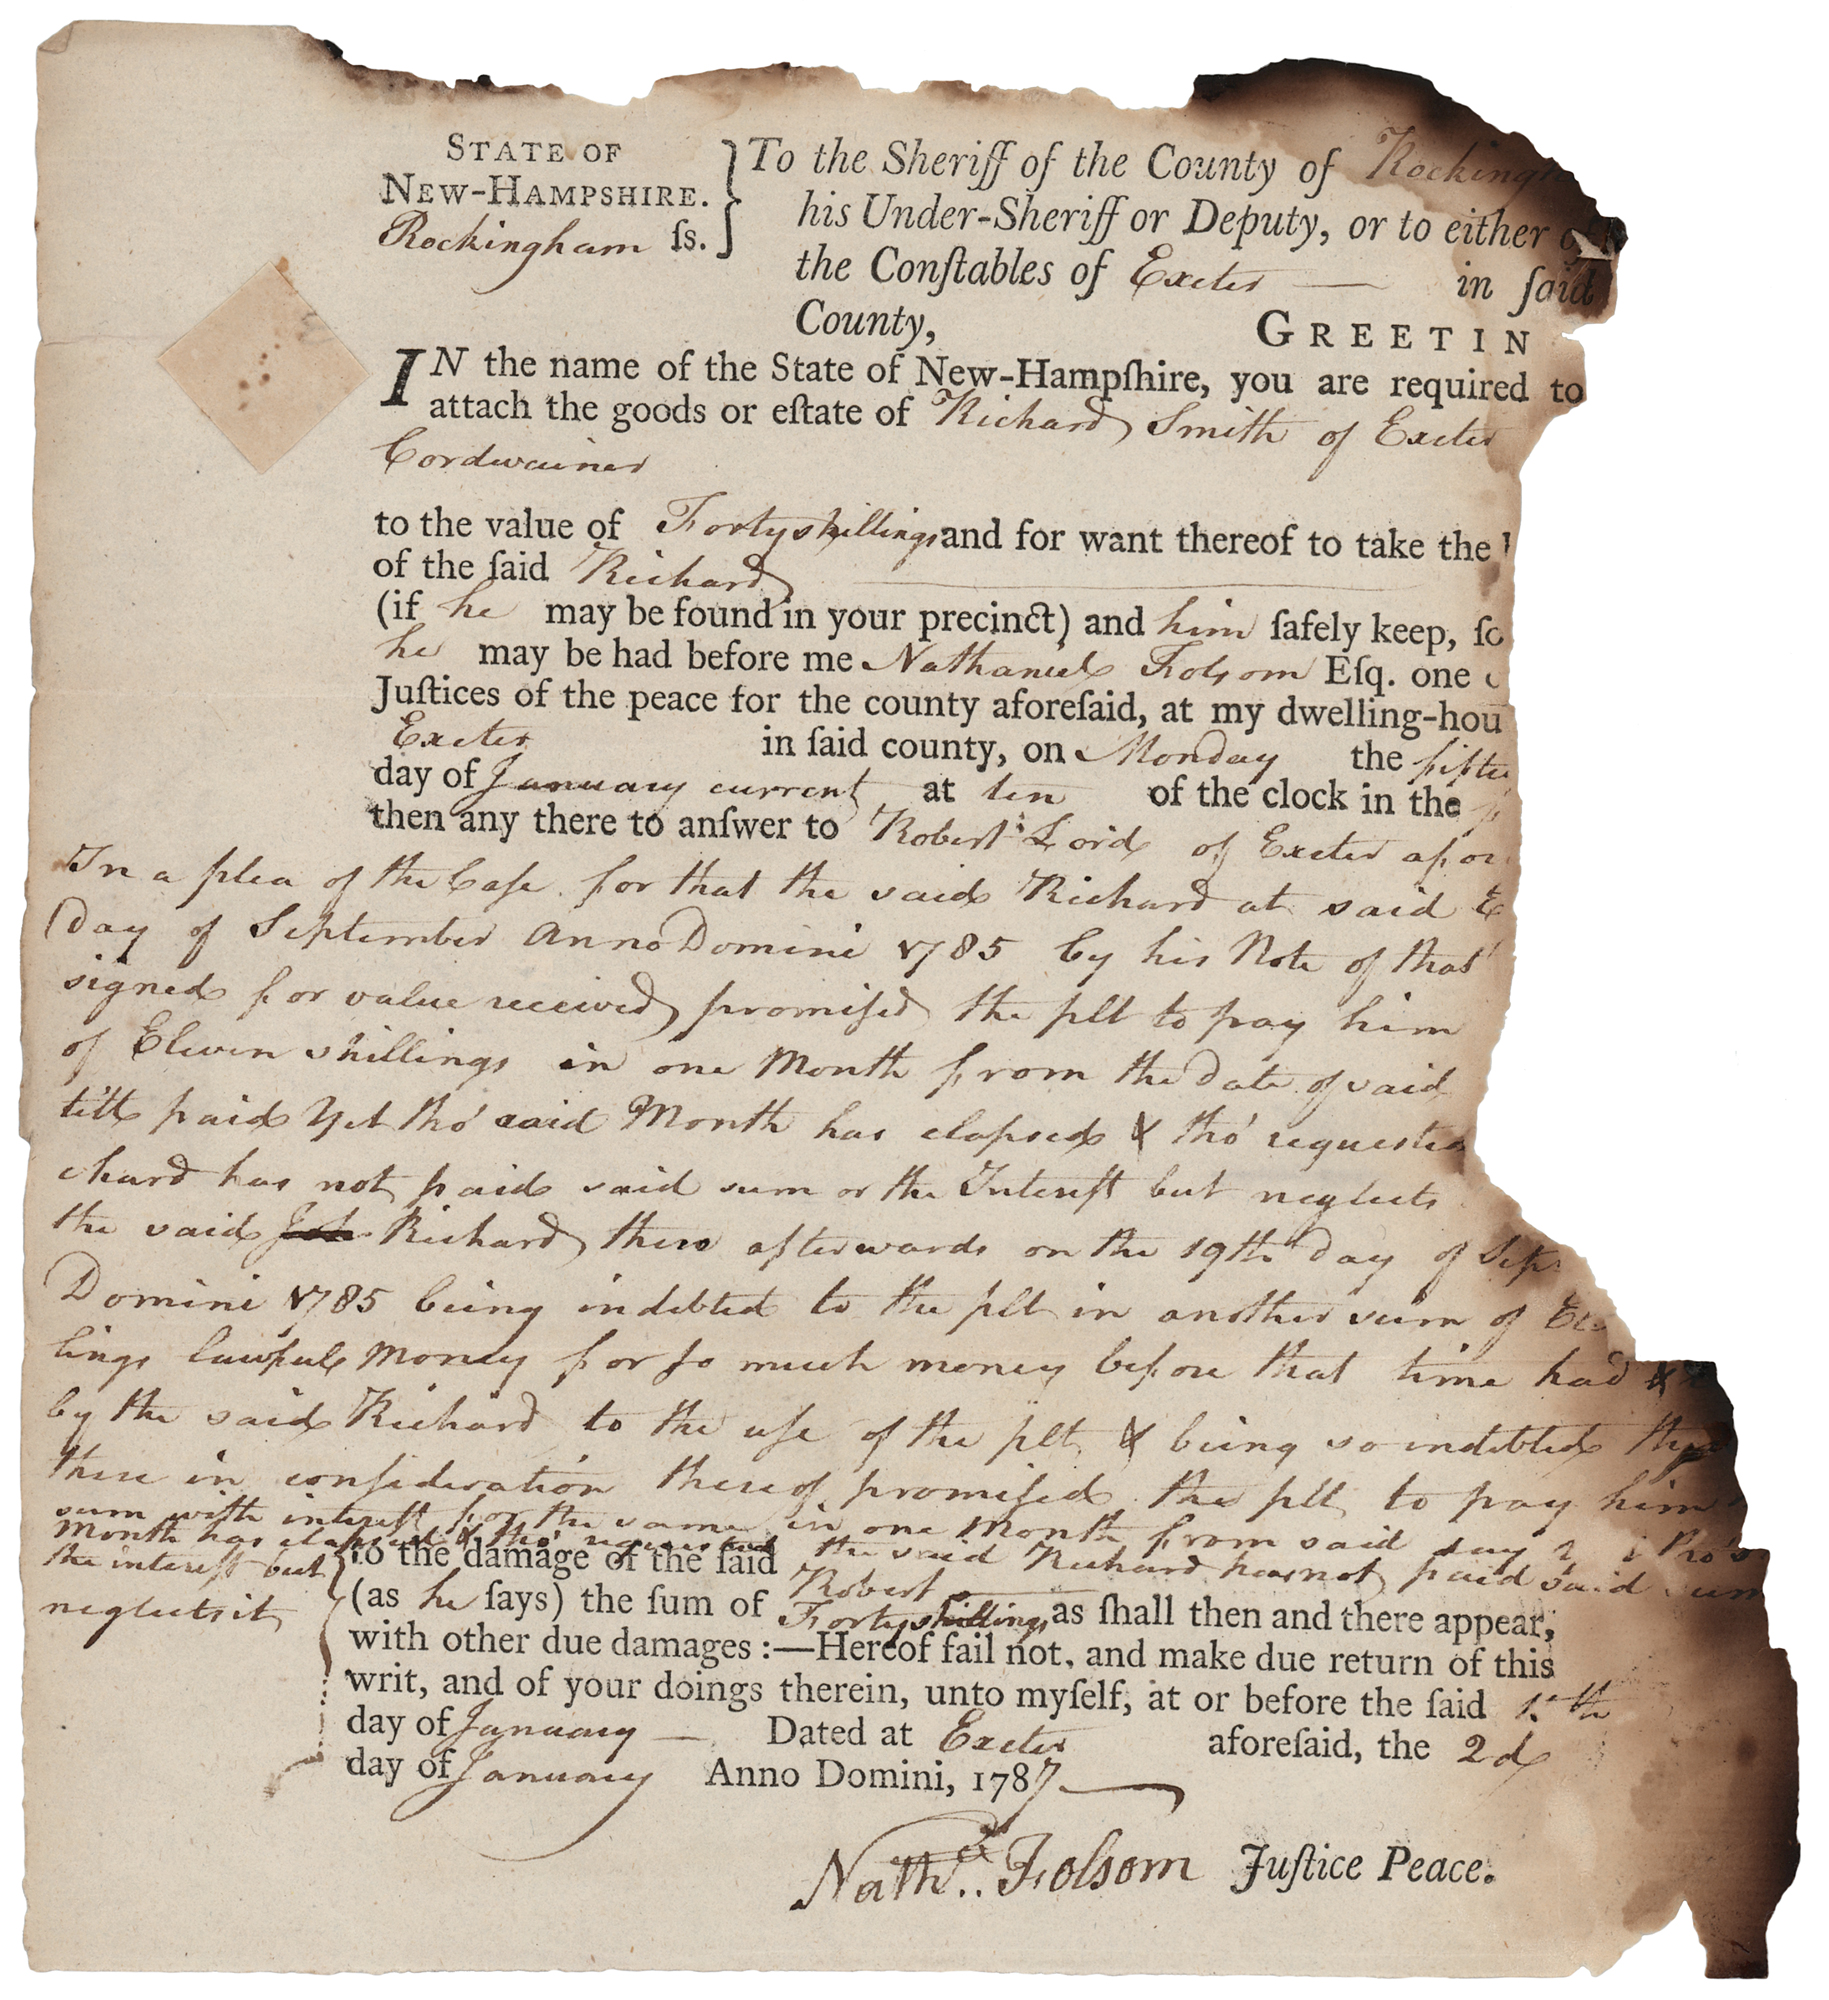 STATE OF
NEW-HAMPSHIRE.
Rockingham ſs.
To the Sheriff of the County of Rockingh
his Under-Sheriff or Deputy, or to either of
the Conſtables of Exeter — in ſaid
County, GREETIN
IN the name of the State of New-Hampſhire, you are required to
attach the goods or eſtate of Richard Smith of Exeter
Cordwainer
to the value of Forty shillings and for want thereof to take the
of the ſaid Richard
(if he may be found in your precinct) and him ſafely keep, ſo
he may be had before me Nathaniel Folsom Eſq. one
Juſtices of the peace for the county aforeſaid, at my dwelling-hou
Exeter in ſaid county, on Monday the fiftee
day of January current at ten of the clock in the
then any there to anſwer to Robert Lord of Exeter afor
In a plea of the Caſe for that the said Richard at said E
Day of September Anno Domini 1785 by his Note of that
signed for value received promiſed the plt to pay him
of Eleven shillings in one Month from the date of said
till paid Yet tho' said Month has elapsed & tho' requested
chard has not paid said sum or the Intereſt but neglects
the said Richard there afterwards on the 19th Day of Sept
Domini 1785 being indebted to the plt in another sum of Ele
lings lawful Money for ſo much money before that time had &
by the said Richard to the uſe of the plt & being so indebted the
there in conſideration thereof promiſed the plt to pay him
sum with intereſt for the same in one Month from said day & tho' s
Month has elapsed & tho' requested the said Richard has not paid said sum
the intereſt but
neglects it
to the damage of the ſaid Robert
(as he ſays) the ſum of Forty shillings as ſhall then and there appear,
with other due damages :—Hereof fail not, and make due return of this
writ, and of your doings therein, unto myſelf, at or before the ſaid 15th
day of January — Dated at Exeter aforeſaid, the 2d
day of January Anno Domini, 1787
Nathl. Folsom Juſtice Peace.